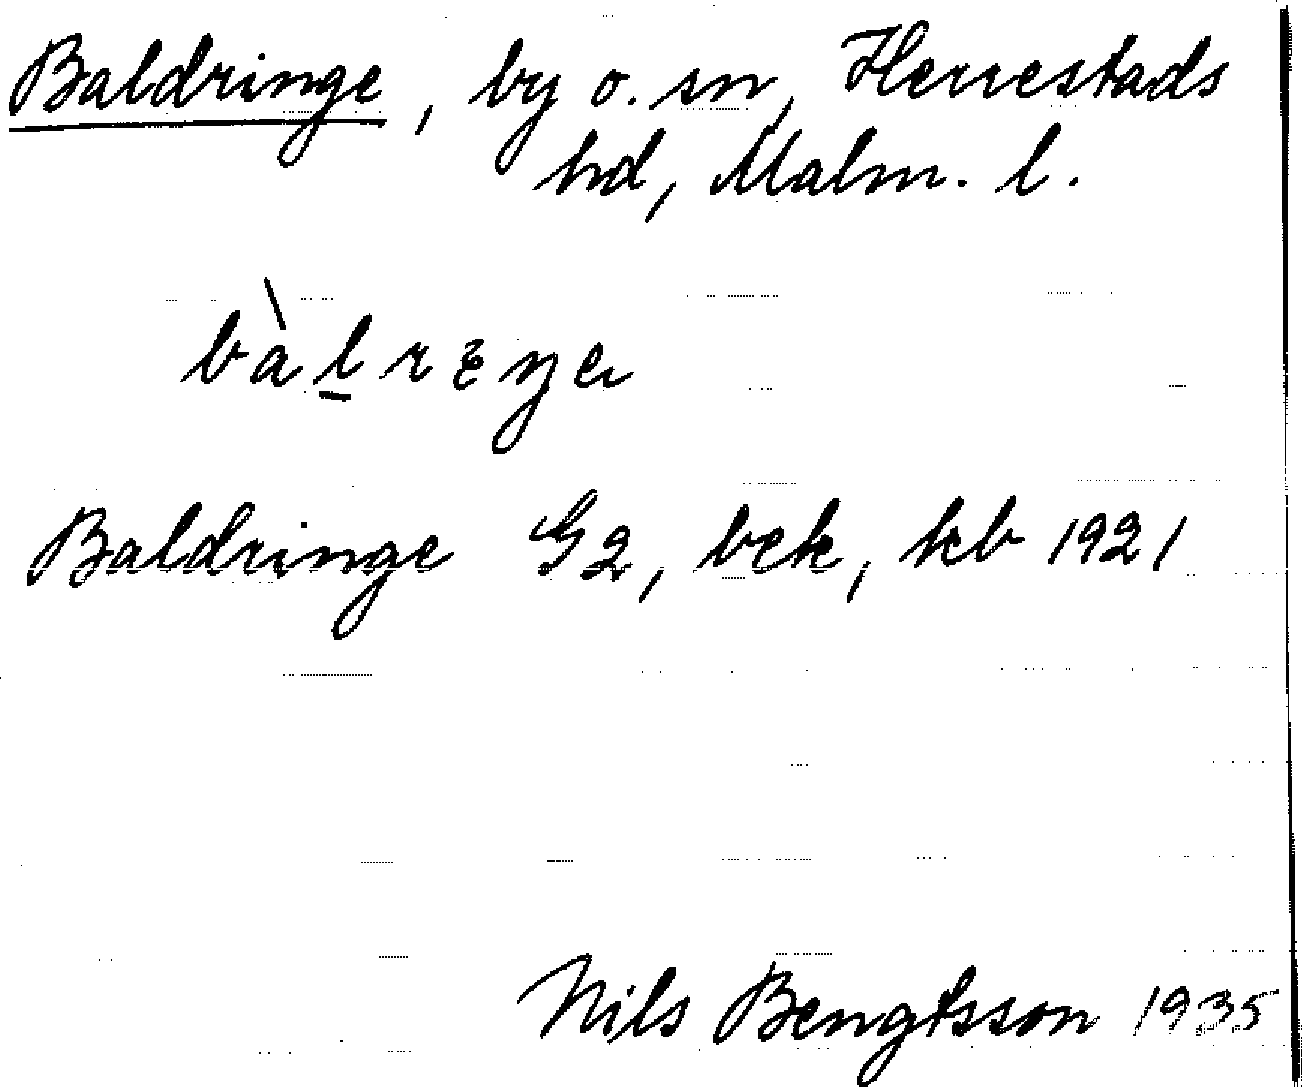 Baldringe, by o. sn, Herrestads
hd, Malm. l.
bàl̲rɛŋe
Baldringe G2, bek, kb 1921
Nils Bengtsson 1935